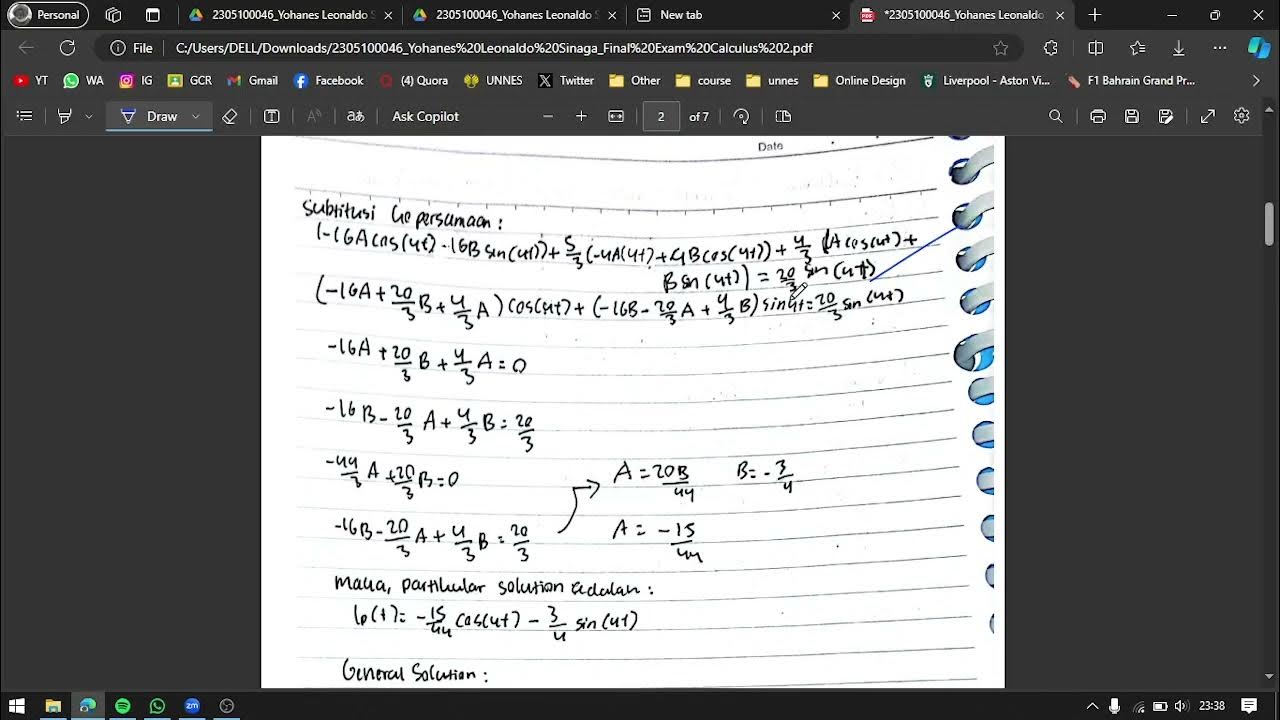 Personal
2305100046_Yohanes Leonaldo S
2305100046_Yohanes Leonaldo S
New tab
*2305100046_Yohanes Leonaldo
File
C:/Users/DELL/Downloads/2305100046_Yohanes%20Leonaldo%20Sinaga_Final%20Exam%20Calculus%202.pdf
YT
WA
IG
GCR
Gmail
Facebook
(4) Quora
UNNES
Twitter
Other
course
unnes
Online Design
Liverpool - Aston Vi...
F1 Bahrain Grand Pr...
Draw
Ask Copilot
2 of 7
Date
Subtitusi ke persamaan :
(-16A cos(4t) - 16B sin(4t)) + 5/3 (-4A(4t) + 4B cos(4t)) + 4/3 (A cos(4t) +
B sin(4t)) = 20/3 sin(4t)
(-16A + 20/3 B + 4/3 A) cos(4t) + (-16B - 20/3 A + 4/3 B) sin 4t = 20/3 sin(4t)
-16A + 20/3 B + 4/3 A = 0
-16B - 20/3 A + 4/3 B = 20/3
-44/3 A + 20/3 B = 0
A = 20B/44 B = -3/4
-16B - 20/3 A + 4/3 B = 20/3
A = -15/44
Maka, partikular solution adalah :
(t) = -15/44 cos(4t) - 3/4 sin(4t)
General Solution :
23:38